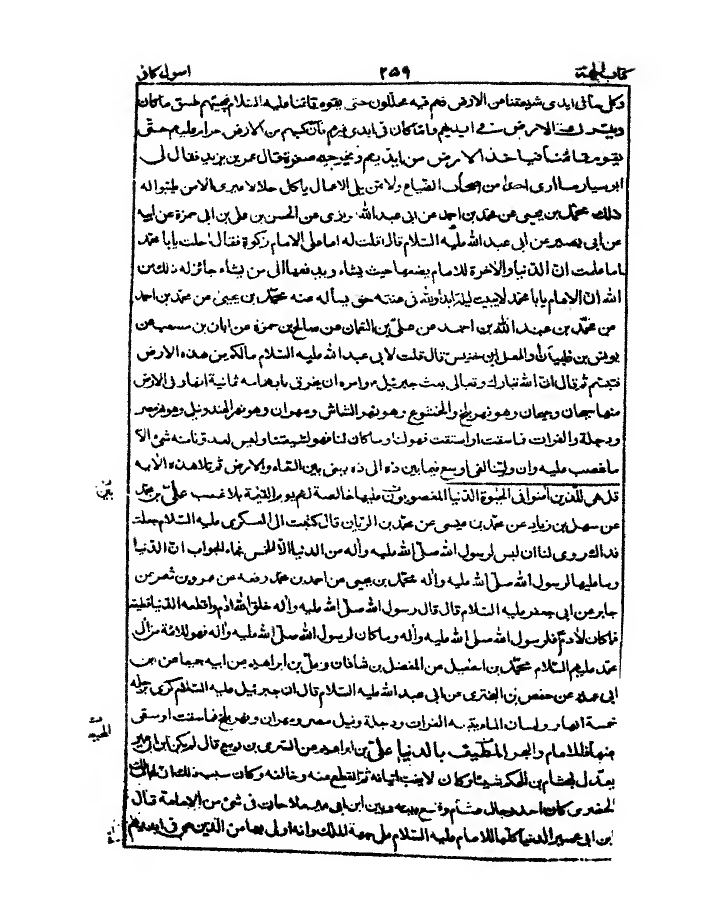 كتاب الحجة ٢٥٩ اصول كافى
وكل ما فى ايدى شيعتنا من الارض فهم فيه محللون حتى يقوم قائمنا عليه السلام فيجبيهم طسق ما كان
ويترك الارض فى ايديهم واما ما كان فى ايدى غيرهم فان كسبهم من الارض حرام عليهم حتى
يقوم قائمنا فياخذ الارض من ايديهم ويخرجهم صغرة قال عمر بن يزيد فقال لى
ابو سيار ما ارى احدا من اصحاب الضياع ولا ممن يلى الاعمال ياكل حلالا غيرى الا من طيبوا له
ذلك محمد بن يحيى عن محمد بن احمد عن ابى عبد الله الرازى عن الحسن بن على بن ابى حمزة عن ابيه
عن ابى بصير عن ابى عبد الله عليه السلام قال قلت له اما على الامام زكوة فقال احلت يا با محمد
اما علمت ان الدنيا والاخرة للامام يضعها حيث يشاء ويدفعها الى من يشاء جائز له ذلك من
الله ان الامام يا با محمد لا يبيت ليلة ابدا ولله فى عنقه حق يسأله عنه محمد بن يحيى عن محمد بن احمد
عن محمد بن عبد الله بن احمد عن على بن النعمان عن صالح بن حمزة عن ابان بن مصعب عن
يونس بن ظبيان او المعلى ابن خنيس قال قلت لابى عبد الله عليه السلام ما لكم من هذه الارض
فتبسم ثم قال ان الله تبارك وتعالى بعث جبرئيل وامره ان يخرق بابهامه ثمانية انهار فى الارض
منها سيحان وجيحان وهو نهر بلخ والخشوع وهو نهر الشاش ومهران وهو نهر الهند ونيل وهو نهر مصر
ودجلة والفرات فما سقت او استقت فهو لنا وما كان لنا فهو لشيعتنا وليس لعدونا منه شئ الا
ما غصب عليه وان ولينا لفى اوسع فيما بين ذه الى ذه يعنى بين السماء والارض ثم تلا هذه الاية
قل هى للذين امنوا فى الحيوة الدنيا المغصوبين عليها خالصة لهم يوم القيمة بلا غصب على بن محمد
عن سهل بن زياد عن محمد بن عيسى عن محمد بن الريان قال كتبت الى العسكرى عليه السلام جعلت
فداك روى لنا ان ليس لرسول الله صلى الله عليه واله من الدنيا الا الخمس فجاء الجواب ان الدنيا
وما عليها لرسول الله صلى الله عليه واله محمد بن يحيى عن احمد بن محمد رفعه عن عمرو بن شمر عن
جابر عن ابى جعفر عليه السلام قال قال رسول الله صلى الله عليه واله خلق الله ادم واقطعه الدنيا قطيعة
فما كان لادم فلرسول الله صلى الله عليه واله وما كان لرسول الله صلى الله عليه واله فهو للائمة من ال
محمد عليهم السلام محمد بن اسمعيل عن الفضل بن شاذان وعلى بن ابراهيم عن ابيه جميعا عن ابن
ابى عمير عن حفص بن البخترى عن ابى عبد الله عليه السلام قال ان جبرئيل عليه السلام كرى برجله
خمسة انهار ولسان الماء يتبعه الفرات ودجلة ونيل مصر ومهران ونهر بلخ فما سقت او سقى
منها فللامام والبحر المطيف بالدنيا على بن ابراهيم عن السرى بن ربيع قال لم يكن ابن ابى عمير
يعدل بهشام بن الحكم شيئا وكان لا يغب اتيانه ثم انقطع عنه وخالفه وكان سبب ذلك ان ابا مالك
الحضرمى كان احد رجال هشام وقع بينه وبين ابن ابى عمير ملاحات فى شئ من الامامة قال
ابن ابى عمير الدنيا كلها للامام عليه السلام على جهة الملك وانه اولى بها من الذين هى فى ايديهم